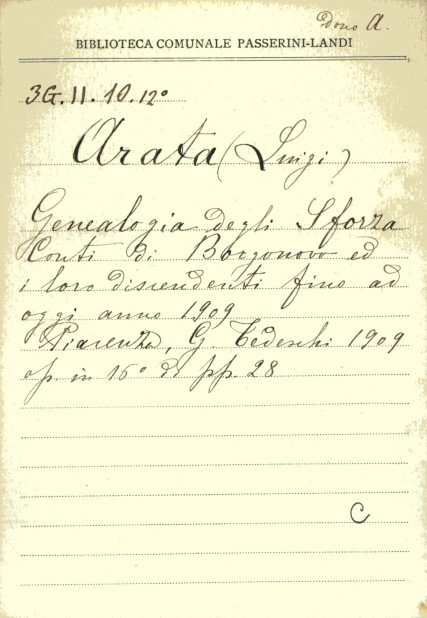 Dono A.
BIBLIOTECA COMUNALE PASSERINI-LANDI
3G.II.10.12º
Arata (Luigi)
Genealogia degli Sforza
Conti di Borgonovo ed
i loro discendenti fino ad
oggi anno 1909
Piacenza, G. Tedeschi 1909
op. in 16º di pp. 28
C